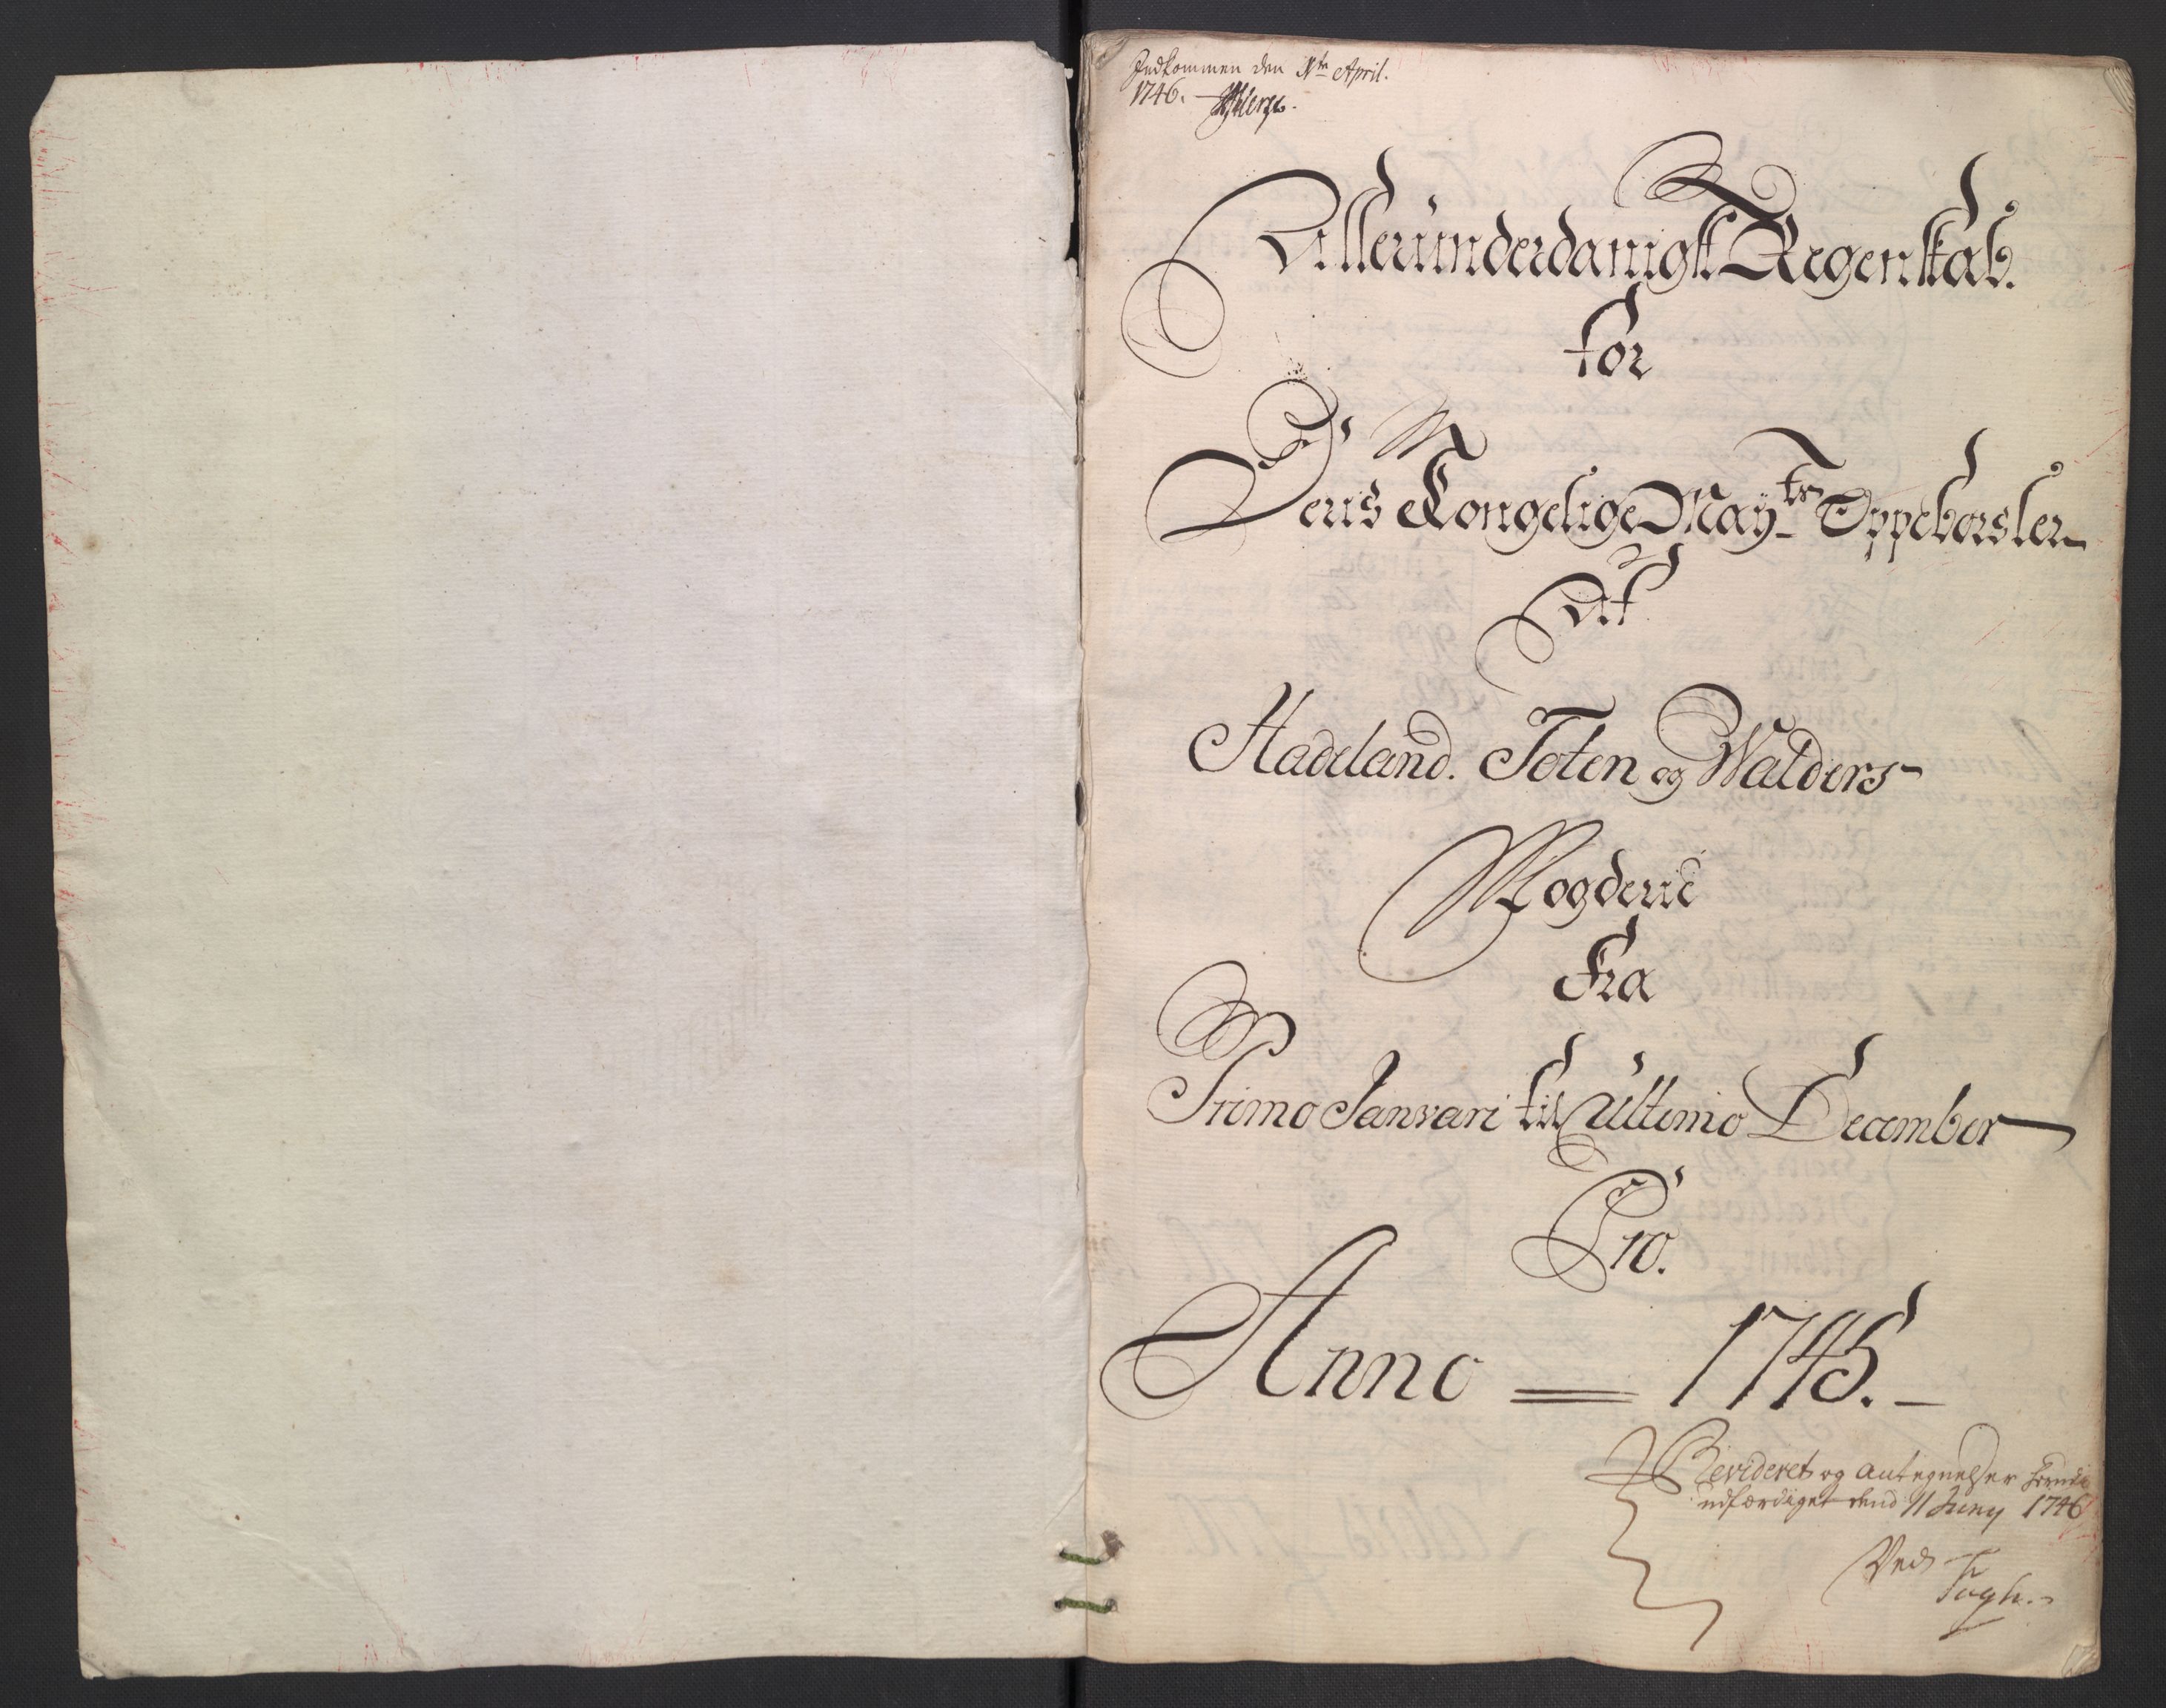 Indkommen den April.
1746.
Allerunderdanigst Regenskab.
for
Deris Kongelige Mayts Oppebørsler
Af
Hadeland. Toten og Walders
Fogderie
Fra
Primo Janvari til Ultimo December
Pro.
Anno 1745.
Revideret og Antegnelser
udfærdiget dend 11 Juny 1746
Ved
Fugh.